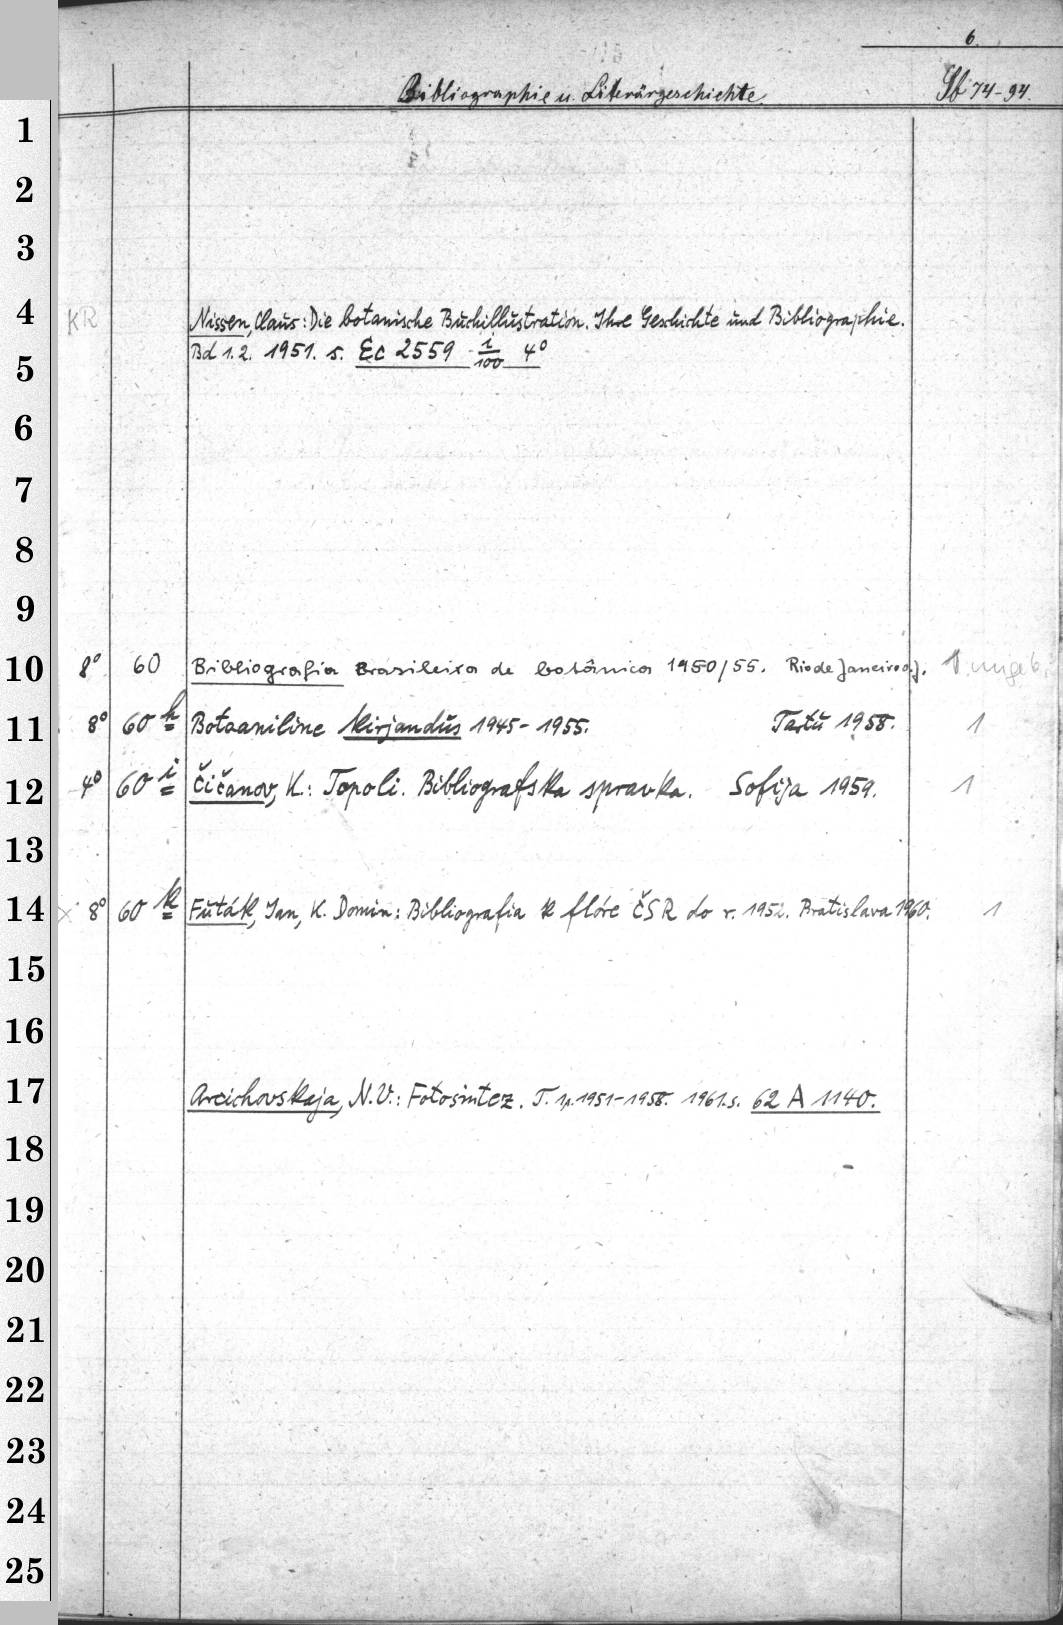 6.
Bibliographie u. Literärgeschichte Sb 74-94.
1
2
3
4 KR Nissen, Claus: Die botanische Buchillustration. Ihre Geschichte und Bibliographie.
5 Bd 1.2. 1951. s. Ec 2559 1/100 4°
6
7
8
9
10 8° 60 Bibliografia Brasileira de botânica 1950/55. Rio de Janeiro o.J. 1
11 8° 60 h Botaaniline kirjandus 1945-1955. Tartu 1958. 1
12 4° 60 i Čičanov, K.: Topoli. Bibliografska spravka. Sofija 1959. 1
13
14 x 8° 60 k Futák, Jan, K. Domin: Bibliografia k flóre ČSR do r. 1952. Bratislava 1960. 1
15
16
17 Arcichovskaja, N.V.: Fotosintez. T. 1951-1958. 1961. s. 62 A 1140.
18
19
20
21
22
23
24
25